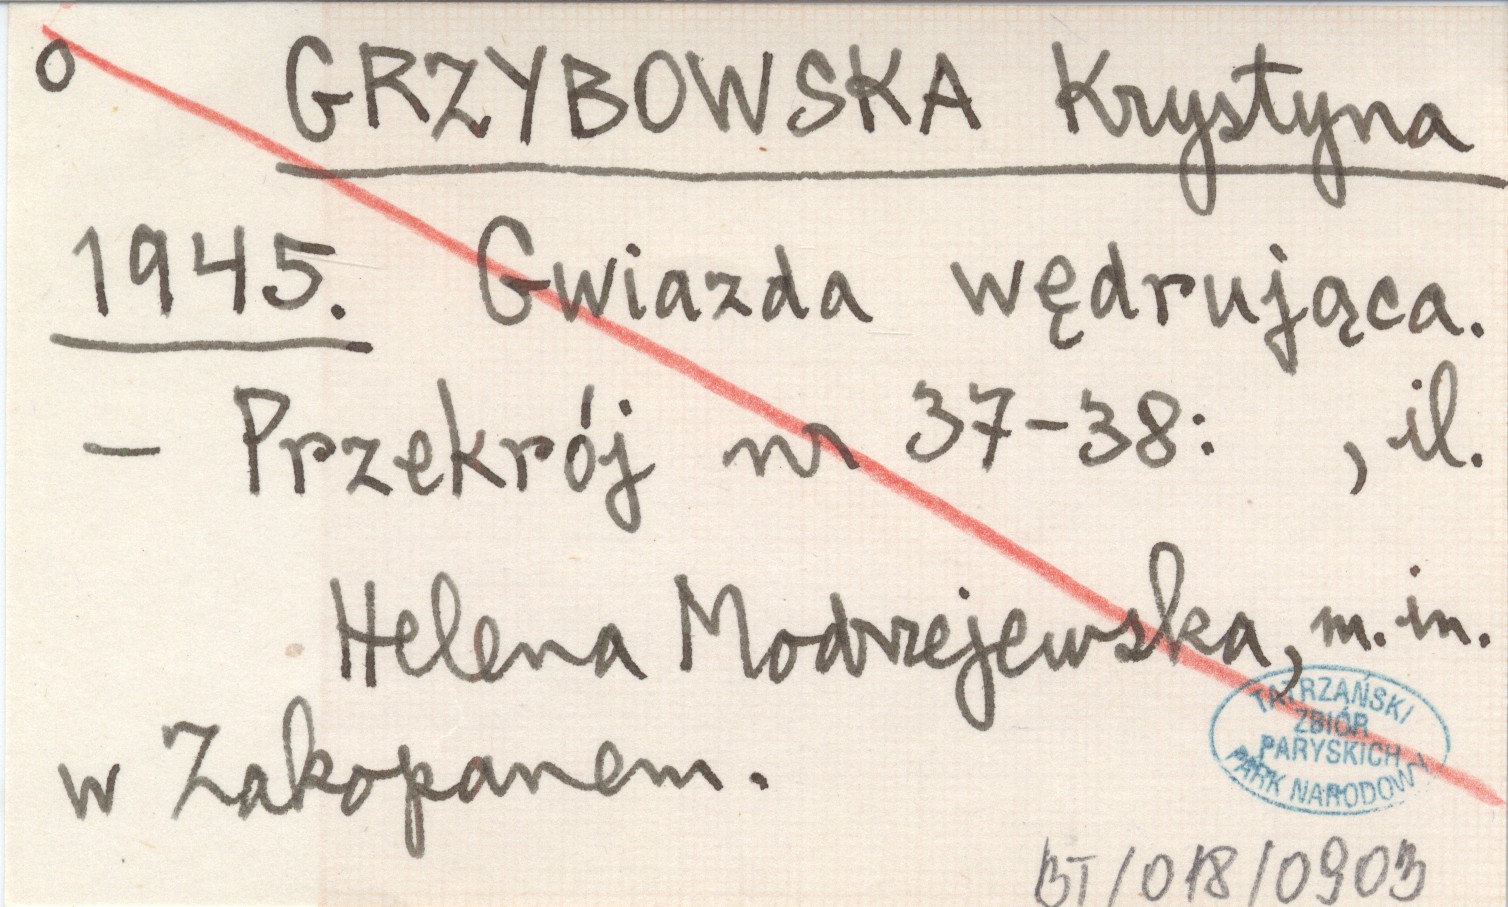 o GRZYBOWSKA Krystyna
1945. Gwiazda wędrująca.
- Przekrój nr 37-38: , il.
Helena Modrzejewska, m.in.
w Zakopanem.
TATRZAŃSKI
ZBIÓR
PARYSKICH
PARK NARODOWY
BT/018/0903